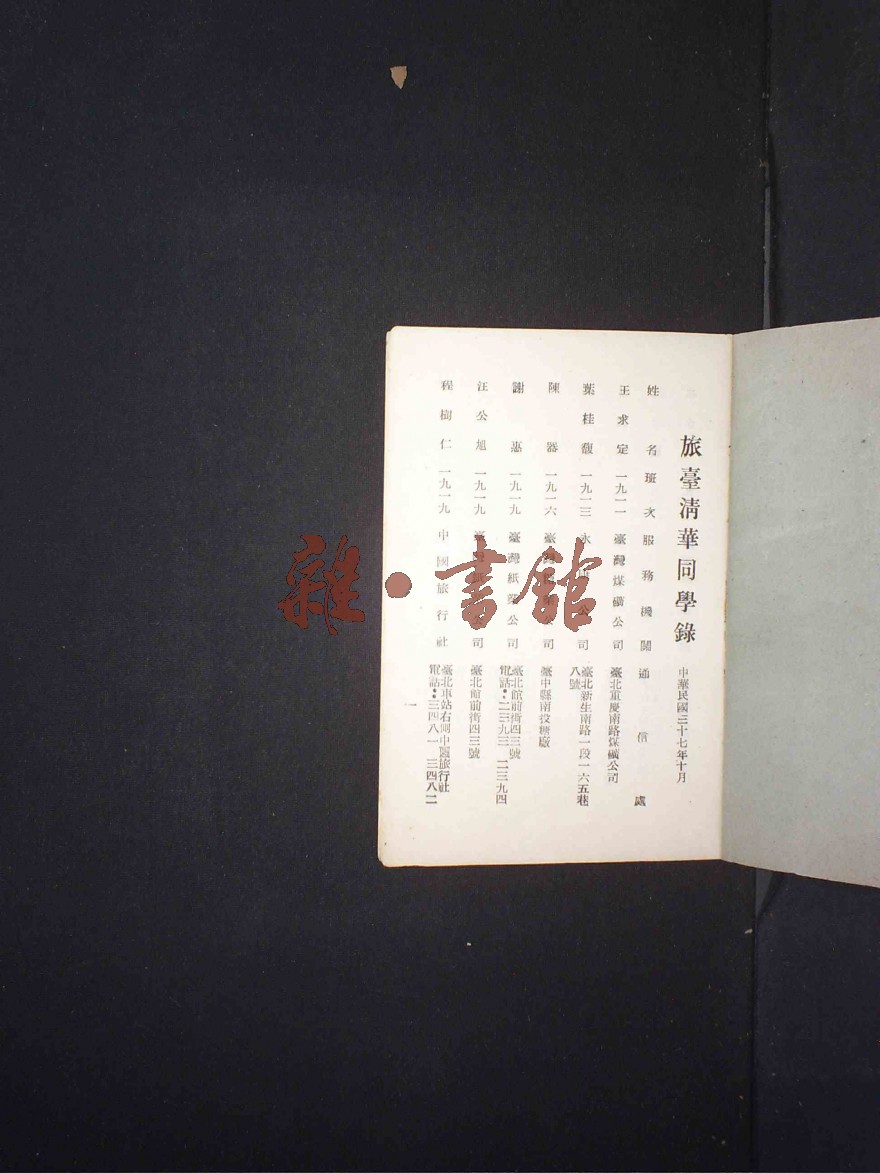 旅臺清華同學錄 中華民國三十七年十月
姓 名 班 次 服 務 機 關 通 信 處
王求定 一九一一 臺灣煤礦公司 臺北重慶南路煤礦公司
葉桂馥 一九一三 永 公司 臺北新生南路一段一六五巷
八號
陳 器 一九一六 臺灣 公司 臺中縣南投糖廠
謝 惠 一九一九 臺灣紙業公司 臺北館前街四三號
電話:二三九三 二三九四
汪公旭 一九一九 臺灣紙 公司 臺北館前街四三號
程樹仁 一九一九 中國旅行社 臺北車站右側中國旅行社
電話:三四八一 三四八二
一
雜·書館